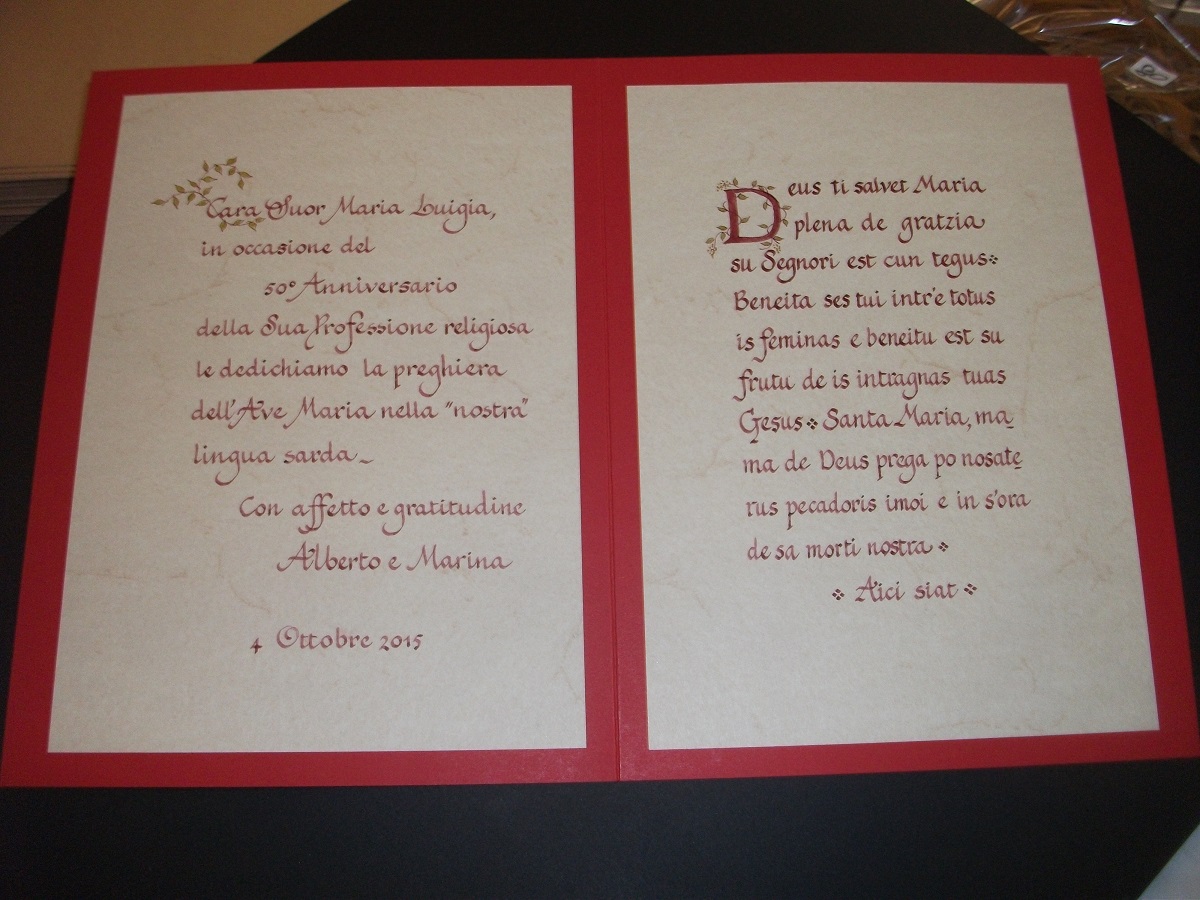 Cara Suor Maria Luigia,
in occasione del
50° Anniversario
della Sua Professione religiosa
le dedichiamo la preghiera
dell'Ave Maria nella "nostra"
lingua sarda_
Con affetto e gratitudine
Alberto e Marina
4 Ottobre 2015
Deus ti salvet Maria
plena de gratzia
su Segnori est cun tegus
Beneita ses tui intr'e totus
is feminas e beneitu est su
frutu de is intragnas tuas
Gesus Santa Maria, ma
ma de Deus prega po nosate
rus pecadoris imoi e in s'ora
de sa morti nostra
Aici siat